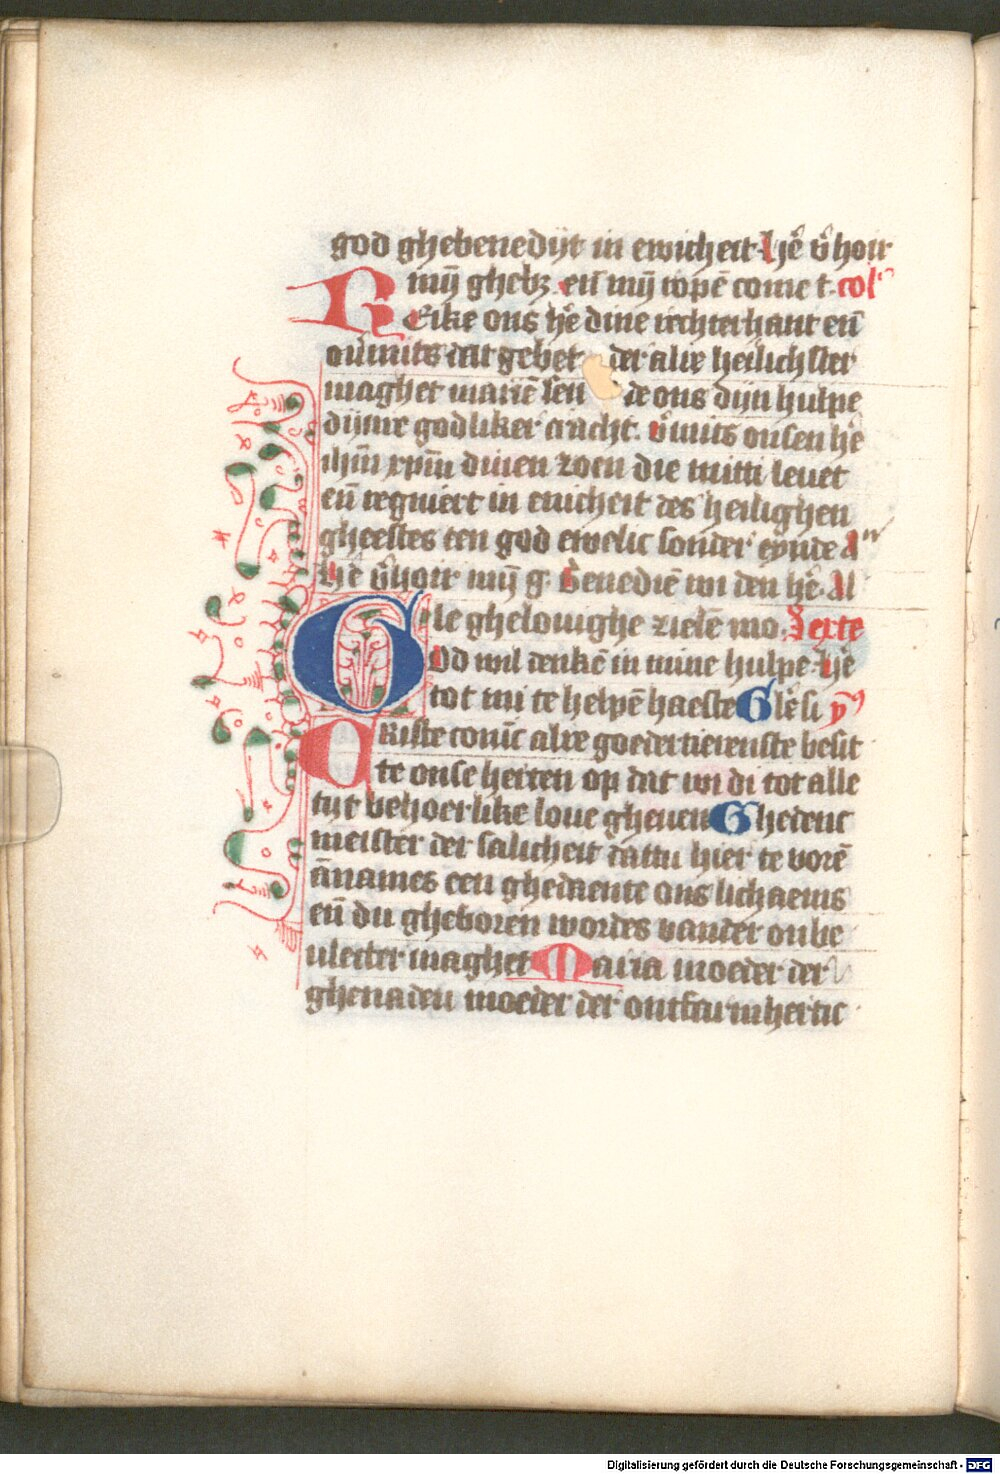 god ghebenedijt in ewicheit. hē v̄hoir
mȳ ghebz. en̄ mȳ ropē come t. col̄
Reike ons hē dine rechterhant en̄
ouīmits dat gebet der alre heilichster
maghet mariē sen de ons dijn hulpe
dijnre godliker cracht. ouīmits onsen hē
ihm̄ xpm̄ dinen zoen die mitti leuet
en̄ regniert in ewicheit des heilighen
gheestes een god ewelic sonder eynde A
hē v̄hoir mȳ g. Benediē wi den hē. Al
le ghelouighe zielē mo. Sexte
God wil denkē in mine hulpe. hē
tot mi te helpē haeste Glē si
Criste conīc alre goedertierenste besit
te onse herten op dat wi di tot alle
tijt behoerlike loue gheuen Ghedenc
meister der salicheit dattu hier te vorē
ānames een ghedaente ons lichaems
en̄ du gheboren wordes vander onbe
ulecter maghet Maria moeder der
ghenaden moeder der ontfarmhertic
Digitalisierung gefördert durch die Deutsche Forschungsgemeinschaft - DFG